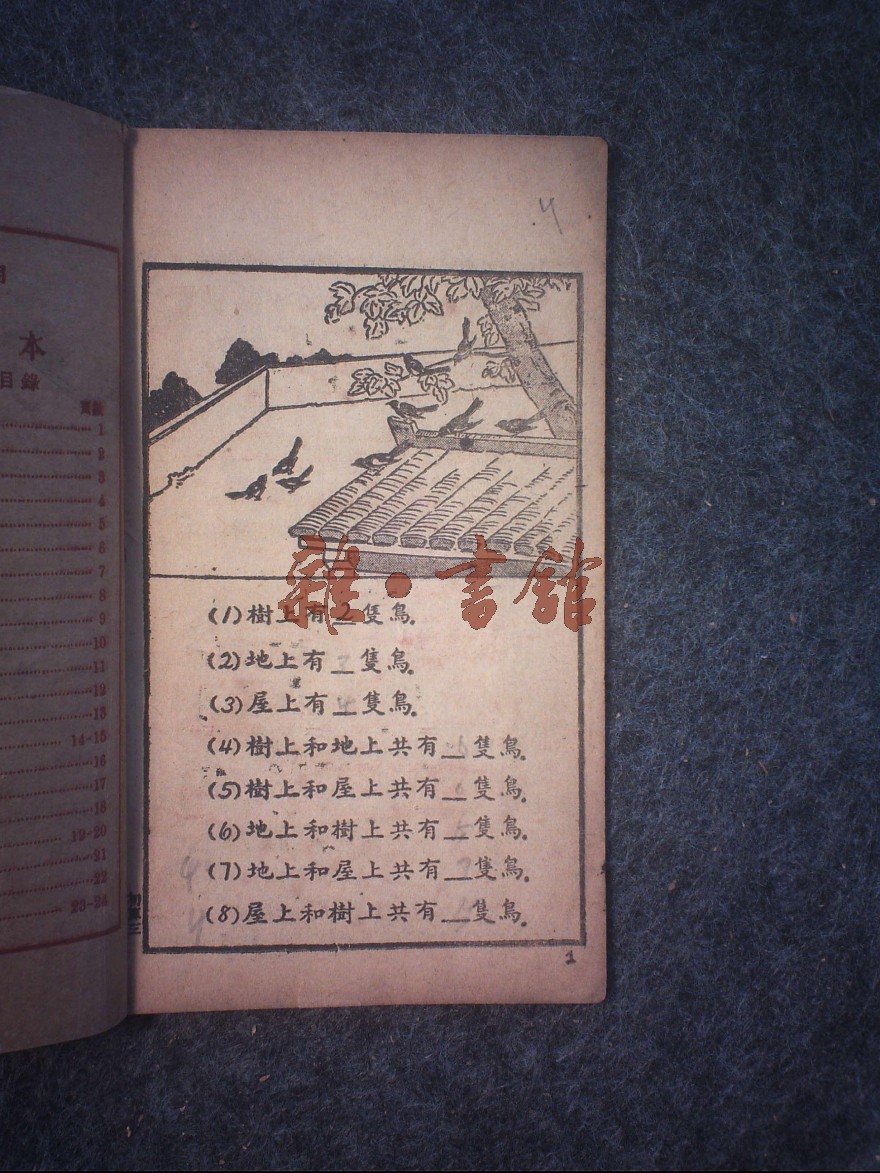 本
目錄
頁數
1
2
3
4
5
6
7
8
9
10
11
12
13
14-15
16
17
18
19-20
21
22
23-24
雜·書館
(1)樹上有2隻鳥.
(2)地上有3隻鳥.
(3)屋上有4隻鳥.
(4)樹上和地上共有5隻鳥.
(5)樹上和屋上共有6隻鳥.
(6)地上和樹上共有5隻鳥.
(7)地上和屋上共有7隻鳥.
(8)屋上和樹上共有__隻鳥.
1